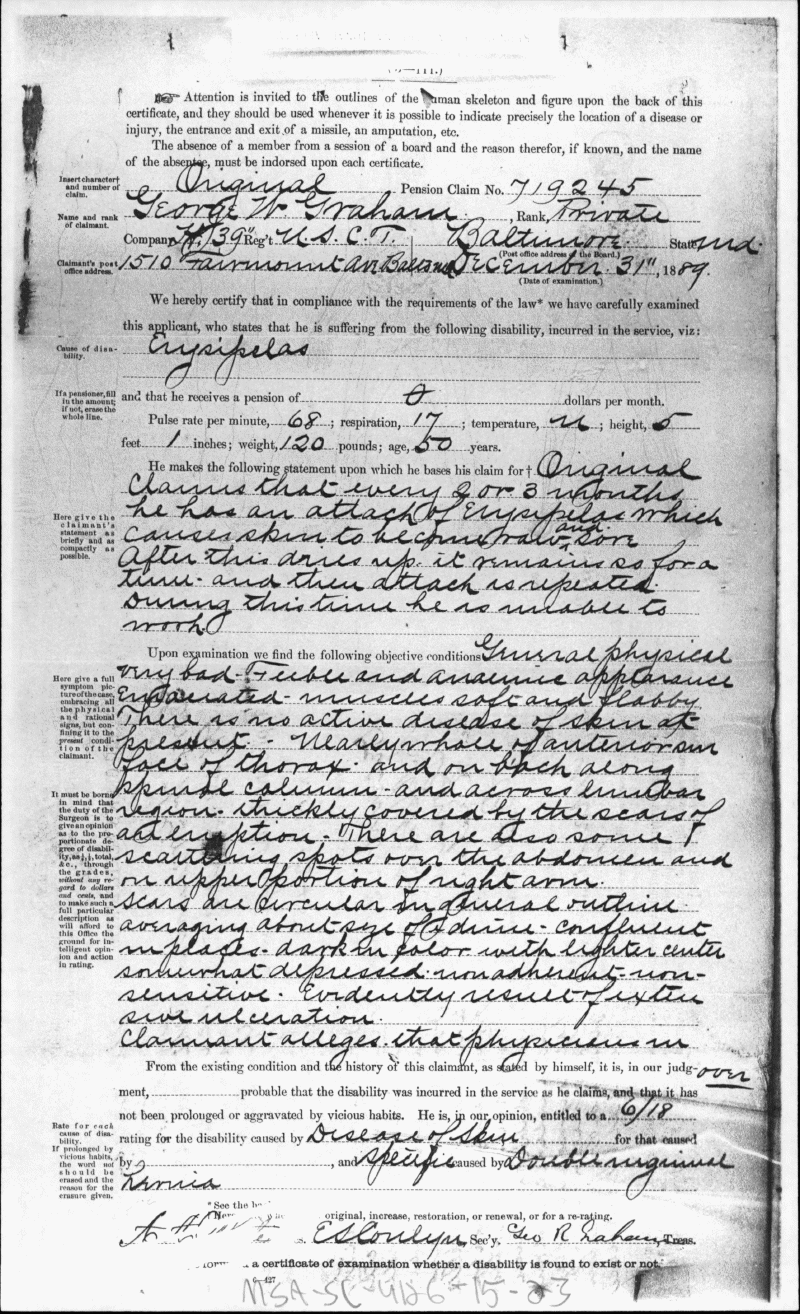 Attention is invited to the outlines of the human skeleton and figure upon the back of this
certificate, and they should be used whenever it is possible to indicate precisely the location of a disease or
injury, the entrance and exit of a missile, an amputation, etc.
The absence of a member from a session of a board and the reason therefor, if known, and the name
of the absentee, must be indorsed upon each certificate.
Insert character and number of claim.
Original Pension Claim No. 719245
Name and rank of claimant.
George W. Graham, Rank, Private
Company H, 39" Reg't U.S.C.T. Baltimore State Md.
(Post office address of the Board.)
Claimant's post office address.
1510 Fairmount Ave Balto Md December 31", 1889.
(Date of examination.)
We hereby certify that in compliance with the requirements of the law* we have carefully examined
this applicant, who states that he is suffering from the following disability, incurred in the service, viz:
Cause of disability.
Erysipelas
If a pensioner, fill in the amount; if not, erase the whole line.
and that he receives a pension of 0 dollars per month.
Pulse rate per minute, 68; respiration, 17; temperature, n; height, 5
feet 1 inches; weight, 120 pounds; age, 50 years.
He makes the following statement upon which he bases his claim for† Original
Here give the claimant's statement as briefly and as compactly as possible.
Claims that every 2 or 3 months
he has an attack of Erysipelas which
causes skin to become raw and sore
After this dries up. it remains so for a
time - and then attack is repeated
During this time he is unable to
work.
Upon examination we find the following objective conditions General physical
Here give a full symptom picture of the case, embracing all the physical and rational signs, but confining it to the present condition of the claimant.
very bad - Feeble and anaemic appearance
Emaciated - muscles soft and flabby
There is no active disease of skin at
present - Nearly whole of anterior sur
face of thorax - and on back along
spinal column - and across lumbar
It must be borne in mind that the duty of the Surgeon is to give an opinion as to the proportionate degree of disability, as ¼, ½, total, &c., through the grades, without any regard to dollars and cents, and to make such a full particular description as will afford to this Office the ground for intelligent opinion and action in rating.
region - thickly covered by the scars of
an eruption - There are also some
scattering spots over the abdomen and
on upper portion of right arm.
Scars are circular in general outline
averaging about size of a dime - confluent
in places - dark in color with lighter center
somewhat depressed - nonadherent - non-
sensitive. Evidently result of exten
sive ulceration.
Claimant alleges that physicians in
over
From the existing condition and the history of this claimant, as stated by himself, it is, in our judg-
ment, probable that the disability was incurred in the service as he claims, and that it has
not been prolonged or aggravated by vicious habits. He is, in our opinion, entitled to a 6/18
Rate for each cause of disability. If prolonged by vicious habits, the word not should be erased and the reason for the erasure given.
rating for the disability caused by Disease of Skin for that caused
by , and specific caused by Double inguinal
hernia
*See the
original, increase, restoration, or renewal, or for a re-rating.
Sec'y. Geo R Graham, Treas.
a certificate of examination whether a disability is found to exist or not.
6—427
MSA-SC-4126-15-23